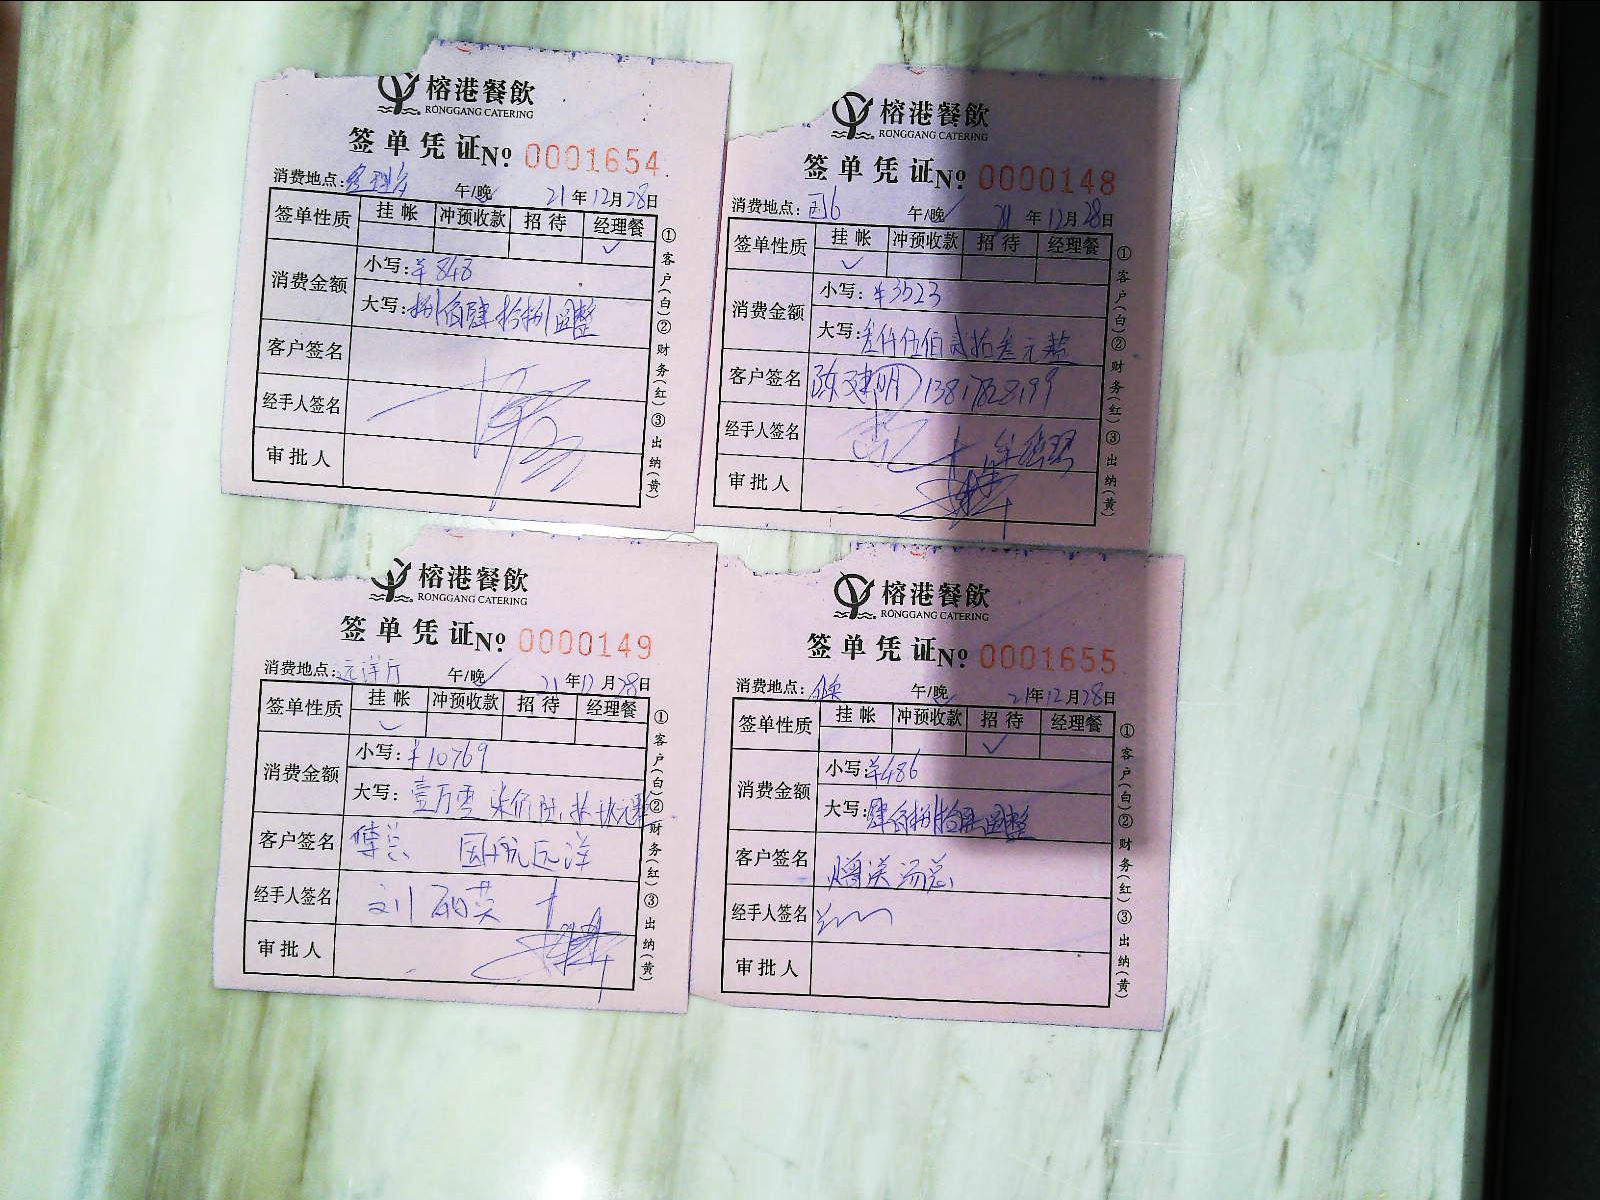 榕港餐飲
RONGGANG CATERING
签单凭证 No 0001654
消费地点: 午/晚 21年12月28日
签单性质 挂帐 冲预收款 招待 经理餐
✓
消费金额 小写: ¥848
大写: 捌佰肆拾捌圆整
客户签名
经手人签名
审批人
①客户(白)②财务(红)③出纳(黄)
榕港餐飲
RONGGANG CATERING
签单凭证 No 0000148
消费地点: 午/晚 21年12月28日
签单性质 挂帐 冲预收款 招待 经理餐
✓
消费金额 小写: ¥3523
大写: 叁仟伍佰贰拾叁元整
客户签名 陈建明
经手人签名
审批人
①客户(白)②财务(红)③出纳(黄)
榕港餐飲
RONGGANG CATERING
签单凭证 No 0000149
消费地点: 远洋厅 午/晚 21年12月28日
签单性质 挂帐 冲预收款 招待 经理餐
✓
消费金额 小写: ¥10769
大写: 壹万零柒佰陆拾玖元整
客户签名 远洋
经手人签名 刘 英
审批人
①客户(白)②财务(红)③出纳(黄)
榕港餐飲
RONGGANG CATERING
签单凭证 No 0001655
消费地点: 午/晚 21年12月28日
签单性质 挂帐 冲预收款 招待 经理餐
✓
消费金额 小写: ¥486
大写: 肆佰捌拾陆圆整
客户签名 赠送汤总
经手人签名
审批人
①客户(白)②财务(红)③出纳(黄)